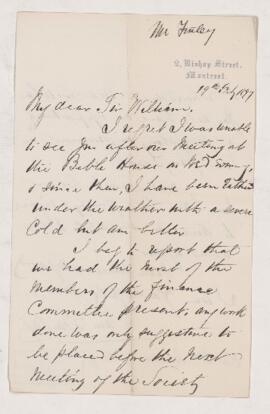 Mr Finley
2, Bishop Street.
Montreal.
19th Feby 1897
My dear Sir William.
I regret I was unable
to see you after our Meeting at
the Bible House on Wed
& since then, I have been rather
under the weather with a severe
Cold but am better
I beg to report that
we had the most of the
members of the Finance
Committee present, any work
done was only suggestive to
be placed before the next
Meeting of the Society